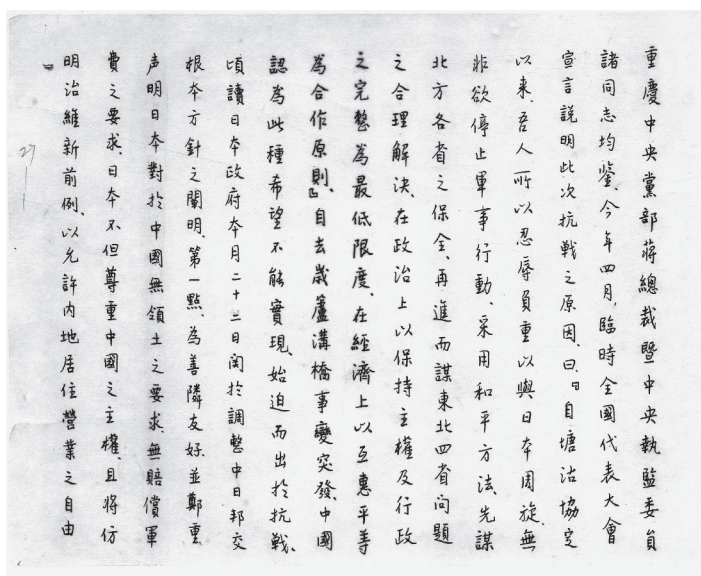 重慶中央黨部蔣總裁暨中央執監委員
諸同志均鑒，今年四月，臨時全國代表大會
宣言說明此次抗戰之原因，曰，『自塘沽協定
以来，吾人所以忍辱負重以與日本周旋，無
非欲停止軍事行動，采用和平方法，先謀
北方各省之保全，再進而謀東北四省问題
之合理解決，在政治上以保持主權及行政
之完整為最低限度，在經濟上以互惠平等
為合作原則』，自去歲蘆溝橋事變突發，中國
認為此種希望不能實現，始迫而出於抗戰，
頃讀日本政府本月二十二日関於調整中日邦交
根本方針之闡明，第一點，為善隣友好，並鄭重
声明日本對於中國無領土之要求，無賠償軍
費之要求，日本不但尊重中國之主權，且將仿
明治維新前例，以允許内地居住營業之自由
27